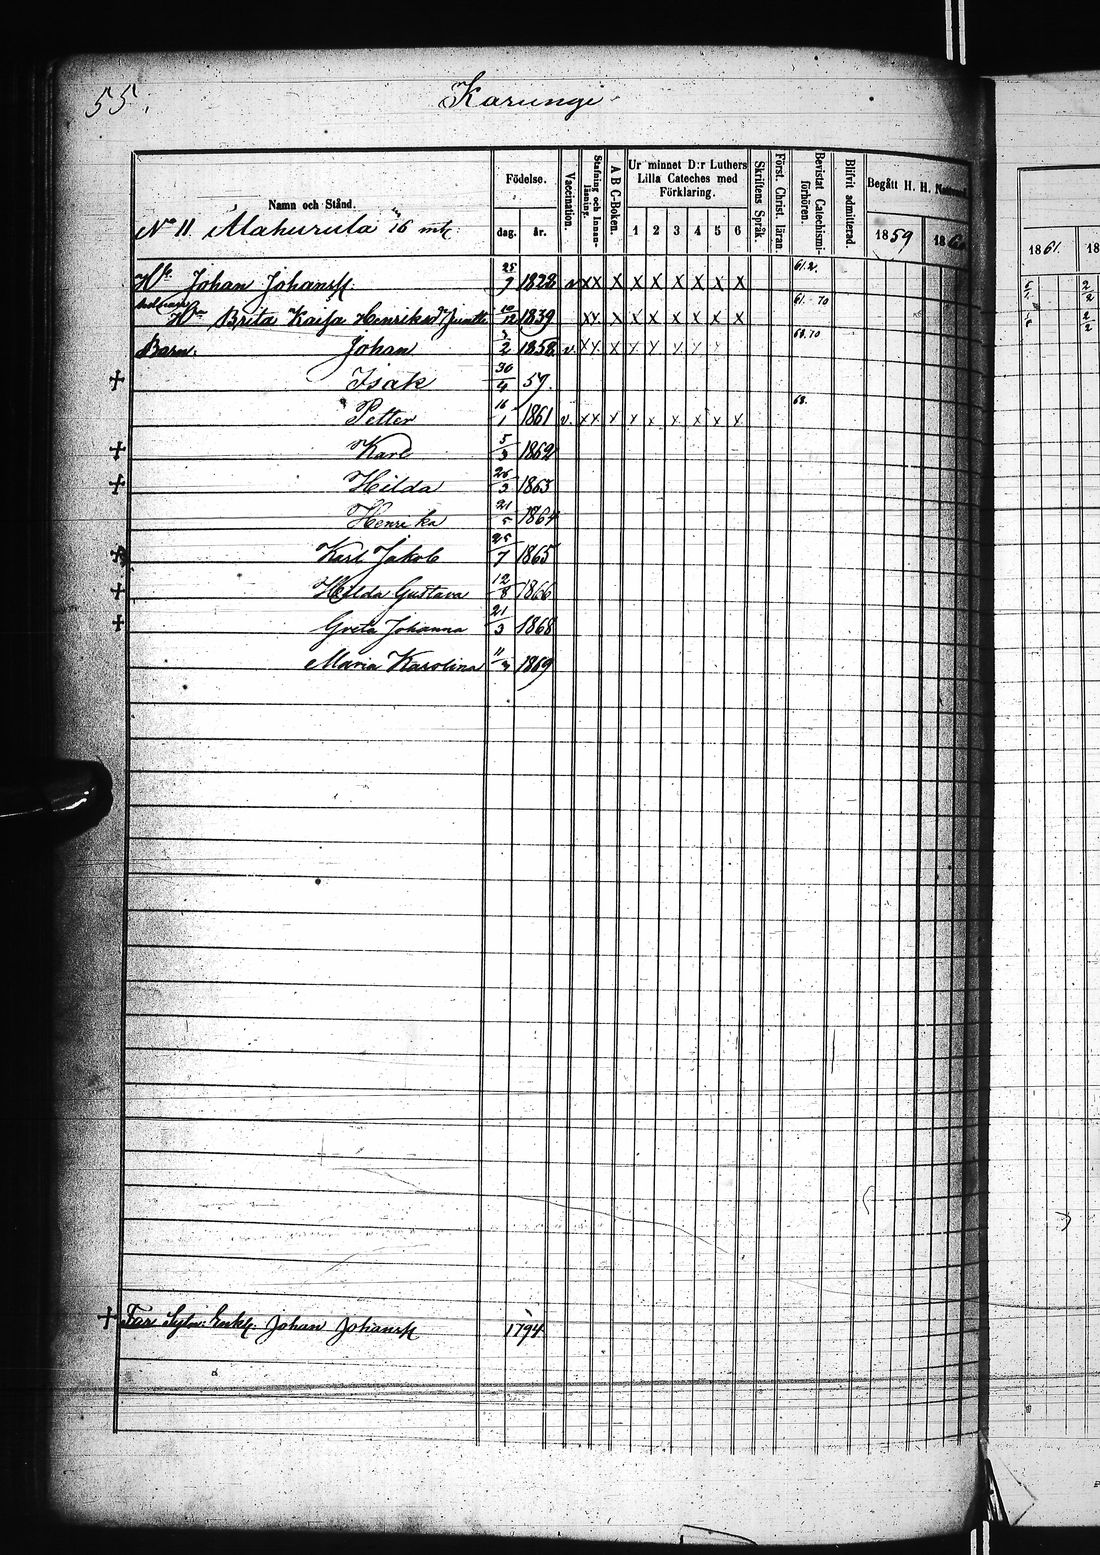 55.
Karungi
Namn och Stånd.
Födelse.
dag.
år.
Vaccination.
Stafning och Innanläsning.
A B C-Boken.
Ur minnet D:r Luthers Lilla Cateches med Förklaring.
1 2 3 4 5 6
Skriftens Språk.
Först. Christ. läran.
Bevistat Catechismiförhören.
Blifvit admitterad.
Begått H. H.
1859
1861.
No 11. 16 mtl.
Johan Johanss. 25/9 1828 v xx x x x x x x x 61.2.
Brita Kaisa Henriksd. /12 1839 xx x x x x x x x 61. 70
Barn: Johan /2 1858 v. xx x x x x x x 68.70
+ Isak 30/4 59.
Petter 16/1 1861 v. xx x x x x x x x 68.
+ Karl 5/3 1862
+ Hilda /3 1863
Henrika 21/5 1864
Karl Jakob 25/7 1865
+ Hilda Gustava 12/8 1866
+ Greta Johanna 21/3 1868
Maria Karolina 11/ 1869
+ Far Johan Johanss. 1794